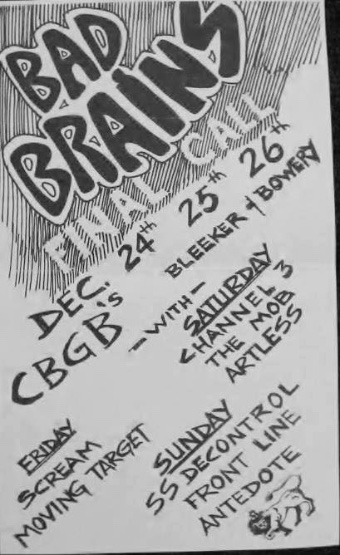 BAD
BRAINS
FINAL CALL
DEC. 24th 25th 26th
CBGB's BLEEKER & BOWERY
- WITH -
SATURDAY
CHANNEL 3
THE MOB
ARTLESS
FRIDAY
SCREAM
MOVING TARGET
SUNDAY
SS DECONTROL
FRONT LINE
ANTEDOTE